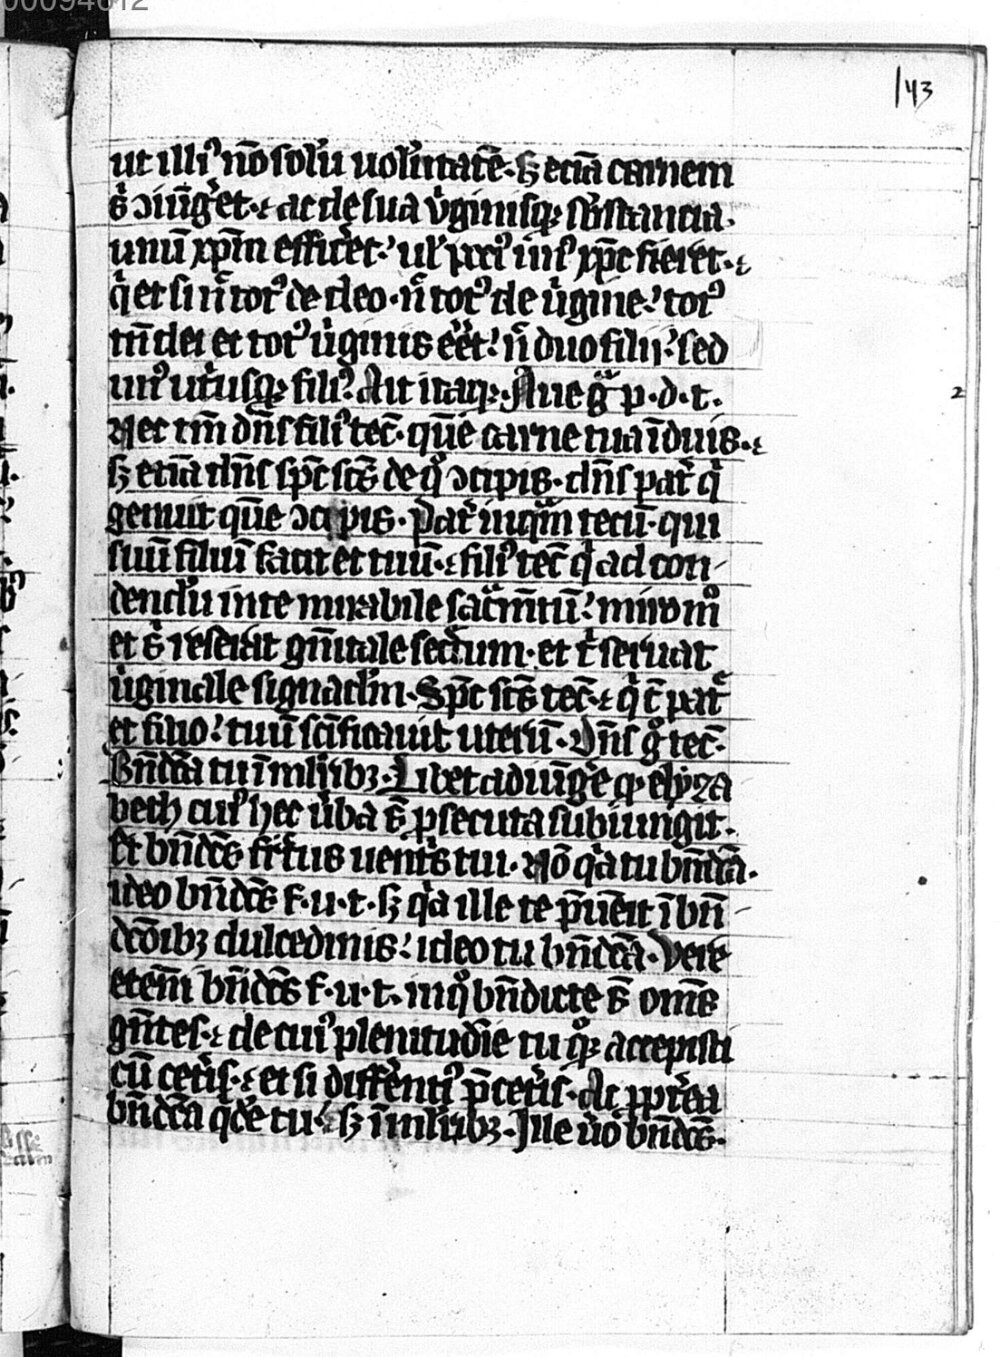 00094612
143
ut illiꝰ nō solū uolūtatē. sꝫ etiā carnem
ẜ ↄiūgͤet. ⁊ ac de sua v̓ginisqꝫ sb̓stantia.
unū xp̄m efficͤet. ul̓ pociꝰ unꝰ xp̄c fieret. ⁊
q̇ et si n̄ totꝰ de deo. n̄ totꝰ de v̓gine. totꝰ
tn̄ dei et totꝰ u̓ginis eēt. n̄ duo filii. sed
unꝰ ut̓usqꝫ filiꝰ. Ait itaqꝫ. Aue gͣ p. d. t.
Nec tm̄ dn̄s filiꝰ tec̄. quē carne tua īduis. ⁊
sꝫ etiā dn̄s sp̄c sc̄s de qͦ ↄcipis. dn̄s pat̓ q̇
genuit quē ↄcipis. Pat̓ inqͣm tecū. qui
suū filiū facit et tuū. ⁊ filiꝰ tec̄ q̇ ad con
dendū in te mirabile sacͣm̄tū. miro mͦ
et ẜ reserat gn̄itale secͤtum. et t̓ seruat
u̓ginale signaclm̄. Sp̄c sc̄s tec̄. ⁊ q̇ c̄ patͤ
et filio. tuū sc̄ificauit uterū. Dn̄s gͦ tec̄.
Bn̄dc̄ta tu ī mlīribꝫ. Libet adiūgͤe qꝫ elyza
beth cuiꝰ hec u̓ba ẜ p̱secuta subiungit.
Et bn̄dc̄s fructus uentͥs tui. Nō qͥa tu bn̄dc̄a.
ideo bn̄dc̄s f. u. t. sꝫ qͥa ille te p̄uēit ī bn̄
dc̄oībꝫ dulcedinis. ideo tu bn̄dc̄a. Vere
etem̄ bn̄dc̄s f. u. t. in qͦ bn̄dicte ẜ om̄s
gn̄tes. ⁊ de cuiꝰ plenitudīe tu qͦqꝫ accepisti
cū cetͥs. ⁊ et si differ̄ntiꝰ p̄ cetͥs. Ac ppt̓ea
bn̄dc̄a qͥdē tu. sꝫ ī mlīribꝫ. Ille u̓o bn̄dc̄s.